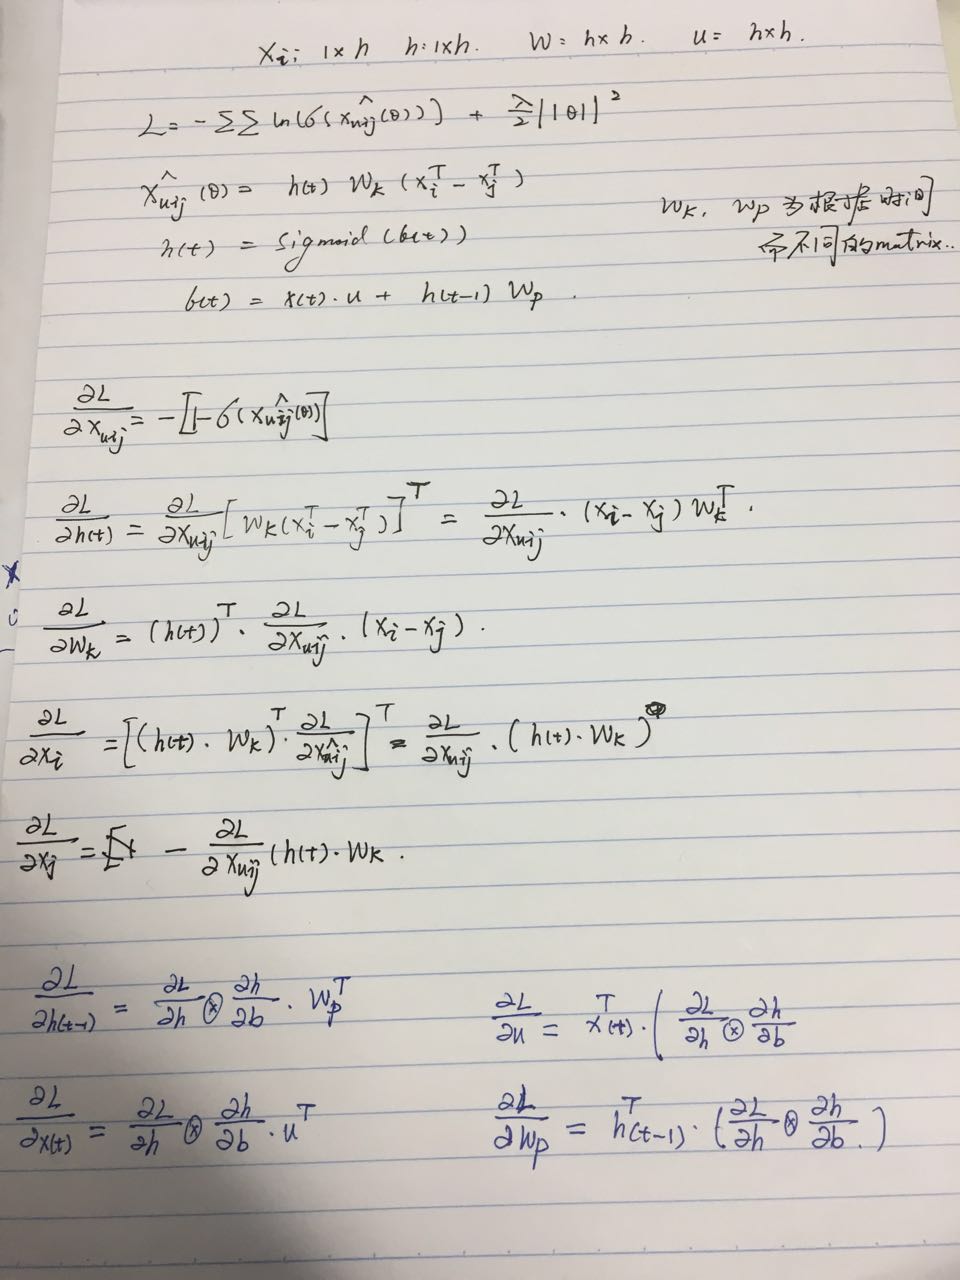 x_i: 1×h  h: 1×h.  W = h×h.  u = h×h.
L = - ΣΣ ln[σ(x̂_uij(θ))] + λ/2 ||θ||²
x̂_uij(θ) = h(t) W_k (x_i^T - x_j^T)
W_k, W_p 为根据时间
而不同的matrix..
h(t) = sigmoid(b(t))
b(t) = x(t)·u + h(t-1) W_p.
∂L/∂x_uij = -[1-σ(x̂_uij(θ))]
∂L/∂h(t) = ∂L/∂x_uij [W_k(x_i^T - x_j^T)]^T = ∂L/∂x_uij · (x_i - x_j) W_k^T.
∂L/∂W_k = (h(t))^T · ∂L/∂x̂_uij · (x_i - x_j).
∂L/∂x_i = [(h(t)·W_k)^T · ∂L/∂x̂_uij]^T = ∂L/∂x̂_uij · (h(t)·W_k)
∂L/∂x_j = - ∂L/∂x̂_uij (h(t)·W_k.
∂L/∂h(t-1) = ∂L/∂h ⊗ ∂h/∂b · W_p^T
∂L/∂u = x^T(t)·(∂L/∂h ⊗ ∂h/∂b
∂L/∂x(t) = ∂L/∂h ⊗ ∂h/∂b · u^T
∂L/∂W_p = h^T(t-1)·(∂L/∂h ⊗ ∂h/∂b.)